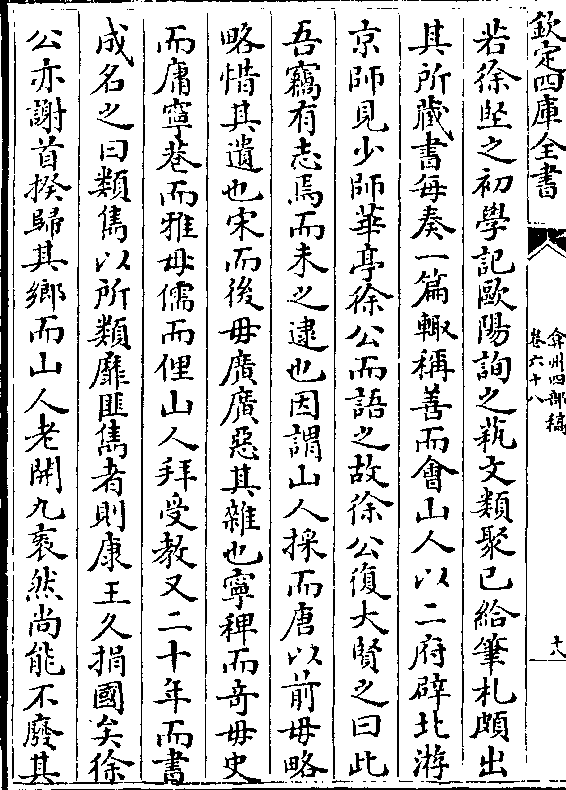 欽定四庫全書
弇州四部稿
卷六十八
十八
若徐堅之初學記歐陽詢之藝文類聚已給筆札頗出
其所藏書每奏一篇輙稱善而會山人以二府辟北游
京師見少師華亭徐公而語之故徐公復大賢之曰此
吾竊有志焉而未之逮也因謂山人採而唐以前毋略
略惜其遺也宋而後毋廣廣惡其雜也寧稗而奇毋史
而庸寧巷而雅毋儒而俚山人拜受教又二十年而書
成名之曰類雋以所類靡匪雋者則康王久捐國矣徐
公亦謝首揆歸其鄉而山人老開九袠然尚能不廢其